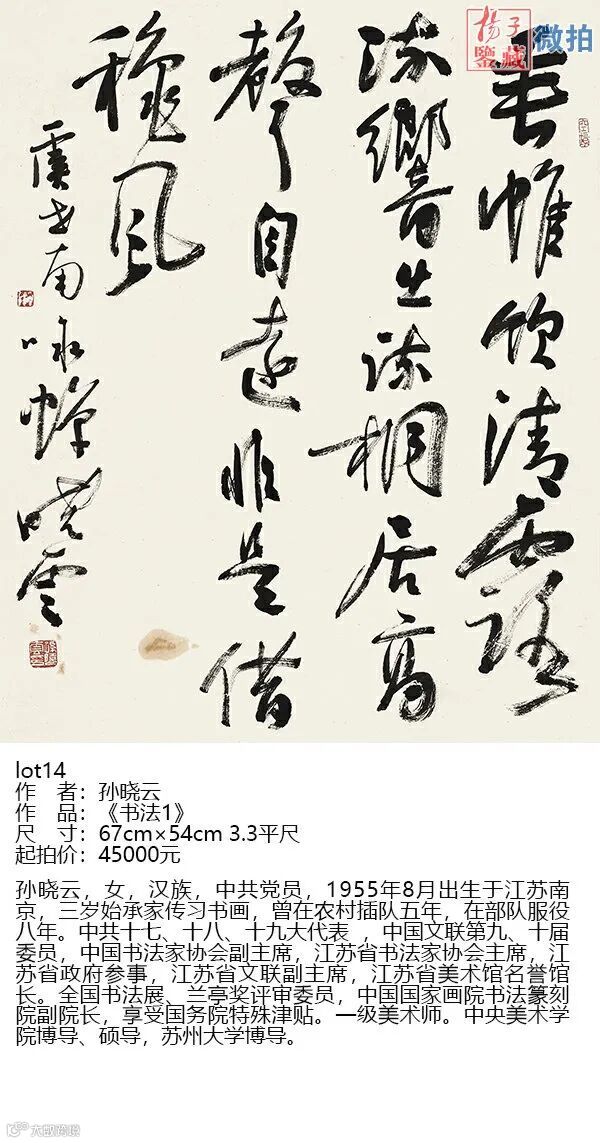 揚子
鑒藏
微拍
垂帷飲清露
流響出疏桐居高
聲自遠非是借
穐風
虞世南咏蝉曉雲
lot14
作　者：孙晓云
作　品：《书法1》
尺　寸：67cm×54cm 3.3平尺
起拍价：45000元
孙晓云，女，汉族，中共党员，1955年8月出生于江苏南
京，三岁始承家传习书画，曾在农村插队五年，在部队服役
八年。中共十七、十八、十九大代表 ，中国文联第九、十届
委员，中国书法家协会副主席，江苏省书法家协会主席，江
苏省政府参事，江苏省文联副主席，江苏省美术馆名誉馆
长。全国书法展、兰亭奖评审委员，中国国家画院书法篆刻
院副院长，享受国务院特殊津贴。一级美术师。中央美术学
院博导、硕导，苏州大学博导。
大数跨境